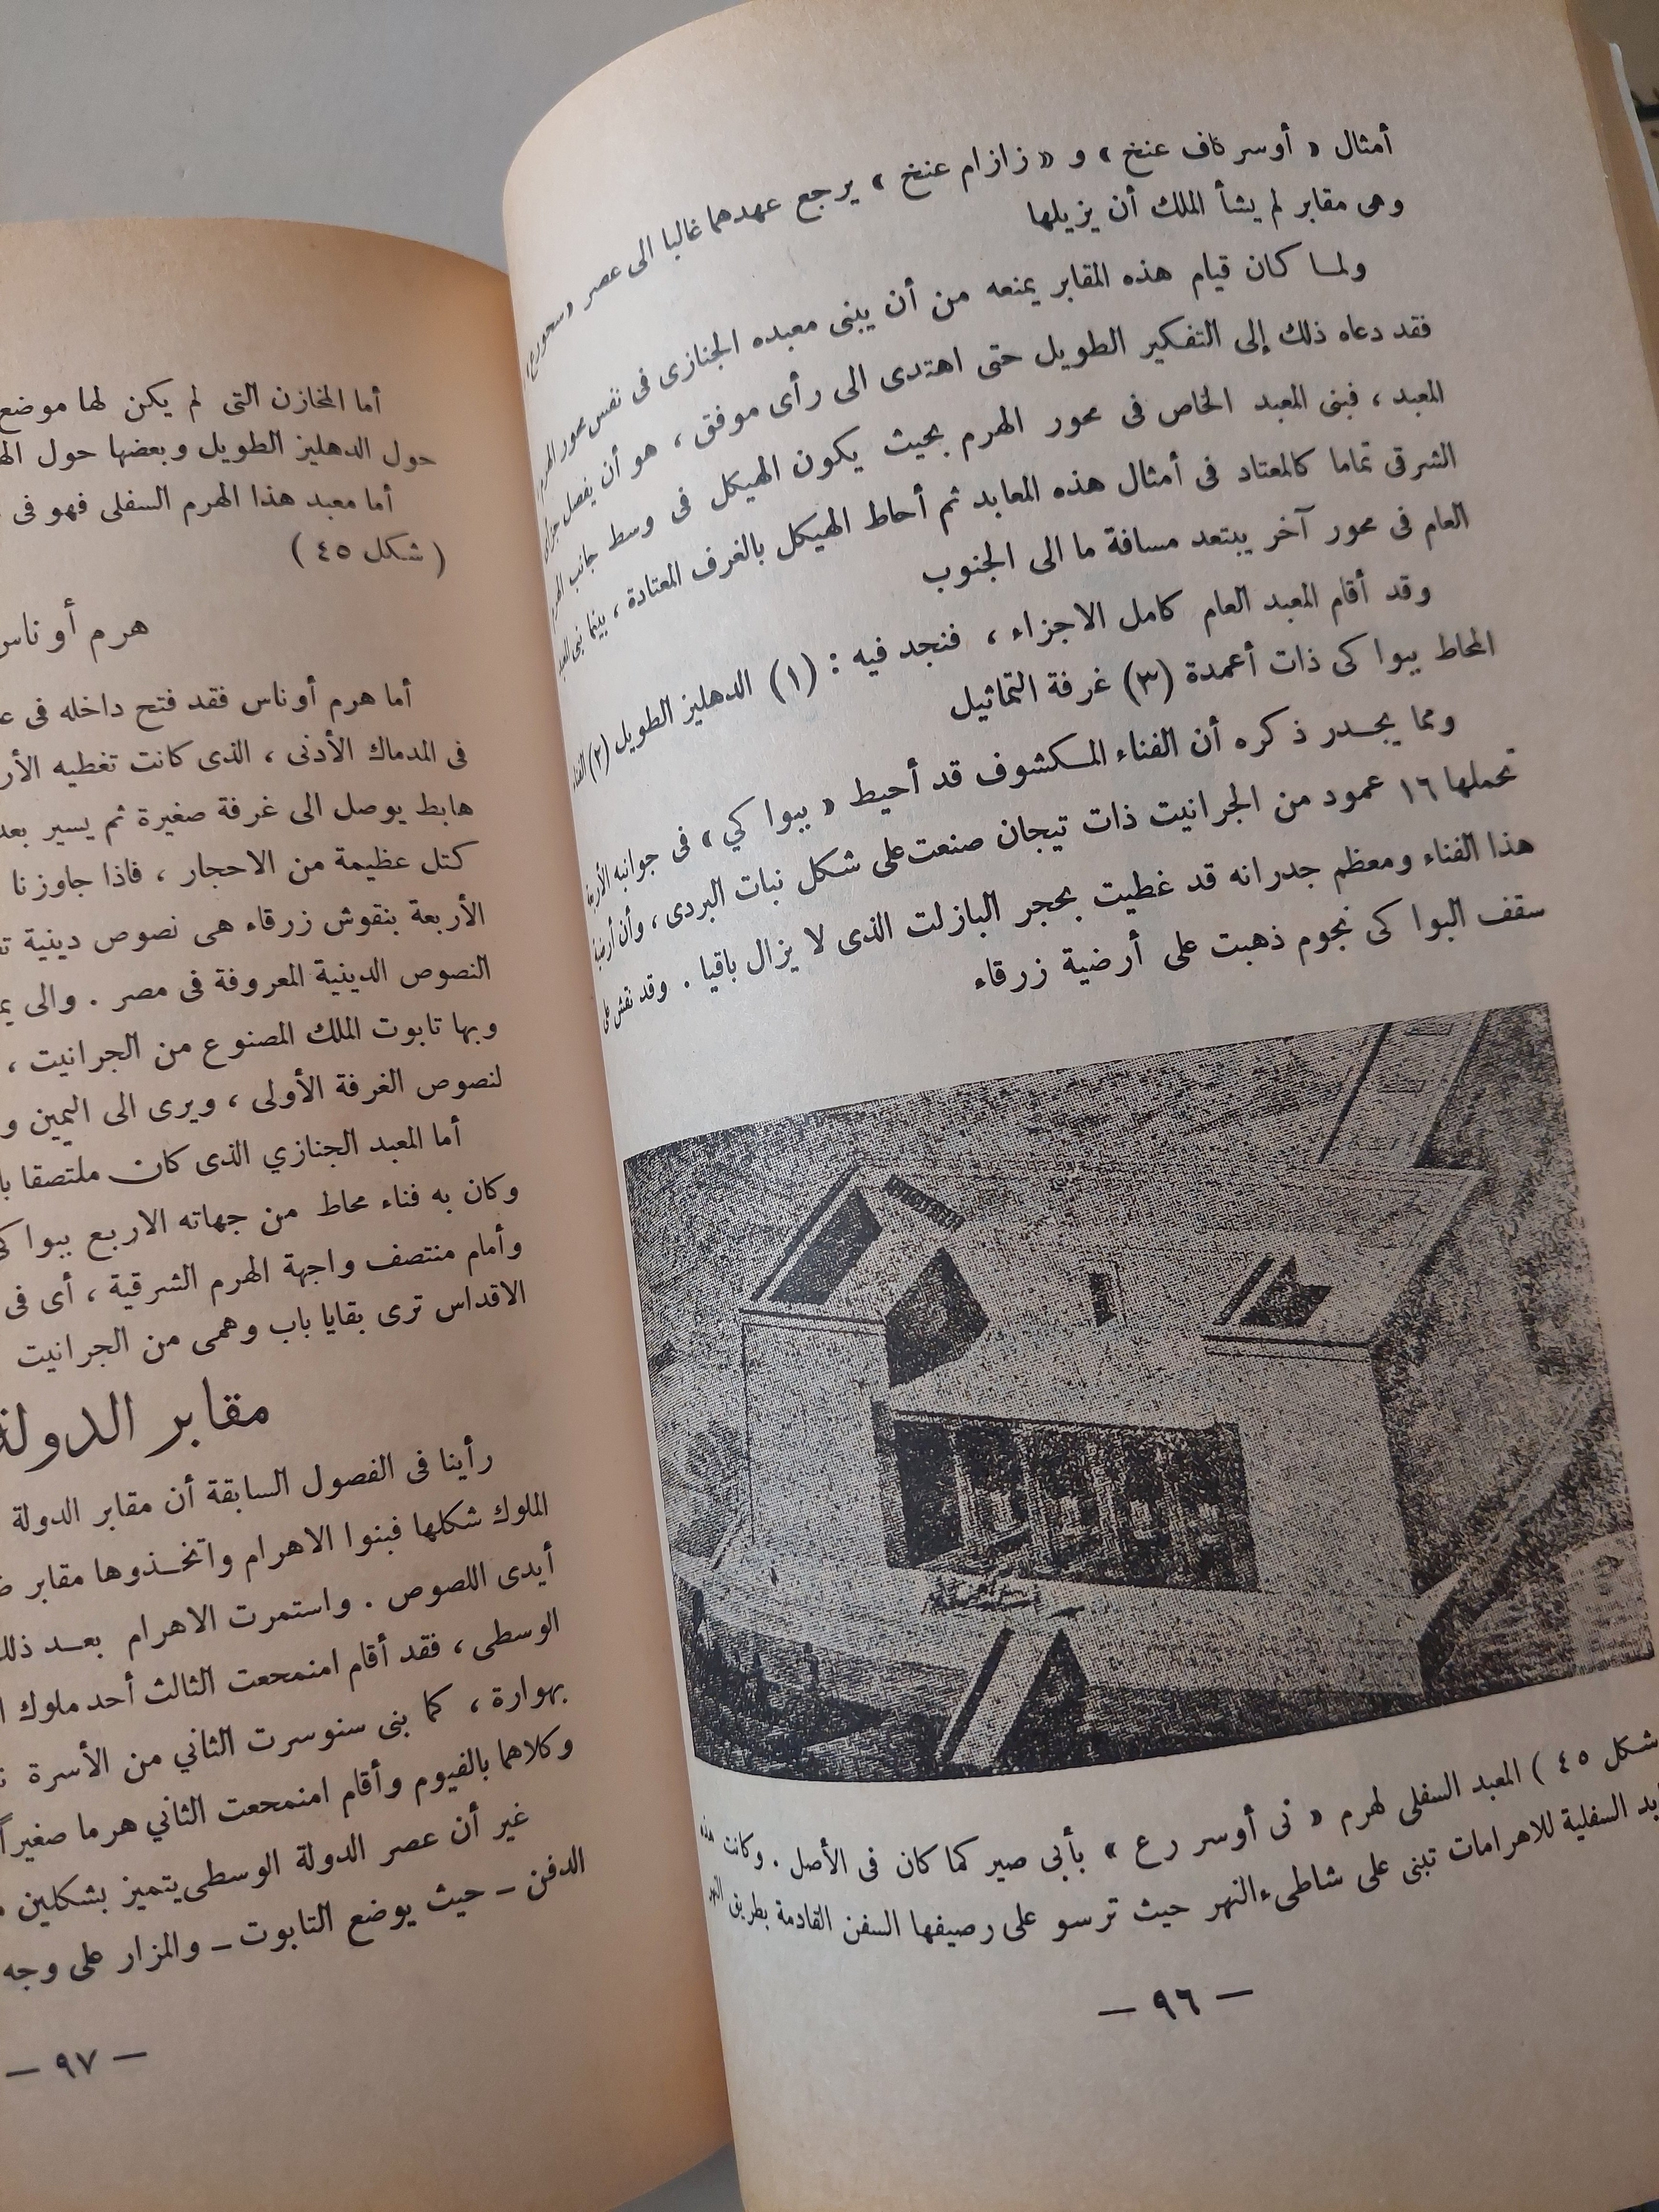 أمثال « أوسر كاف عنخ » و « زازام عنخ » يرجع عهدهما غالبا الى عصر « سحورع »
وهى مقابر لم يشأ الملك أن يزيلها
ولمـا كان قيام هذه المقابر يمنعه من أن يبنى معبده الجنازى فى نفس محور الهرم
فقد دعاه ذلك إلى التفكير الطويل حتى اهتدى الى رأى موفق ، هو أن يفصل جزأى
المعبد ، فبنى المعبد الخاص فى محور الهرم بحيث يكون الهيكل فى وسط جانب الهرم
الشرقى تماما كالمعتاد فى أمثال هذه المعابد ثم أحاط الهيكل بالغرف المعتادة ، بينما بنى المعبد
العام فى محور آخر يبتعد مسافة ما الى الجنوب
وقد أقام المعبد العام كامل الاجزاء ، فنجد فيه : (١) الدهليز الطويل (٢) الفناء
المحاط ببوا كى ذات أعمدة (٣) غرفة التماثيل
ومما يجـدر ذكره أن الفناء المكشوف قد أحيط « ببوا كي » فى جوانبه الأربعة
تحملها ١٦ عمود من الجرانيت ذات تيجان صنعت على شكل نبات البردى ، وأن أرضية
هذا الفناء ومعظم جدرانه قد غطيت بحجر البازلت الذى لا يزال باقيا . وقد نقش على
سقف البوا كى نجوم ذهبت على أرضية زرقاء
شكل ٤٥ ) المعبد السفلى لهرم « نى أوسر رع » بأبى صير كما كان فى الأصل . وكانت هذه
السفلية للاهرامات تبنى على شاطىء النهر حيث ترسو على رصيفها السفن القادمة بطريق النهر
— ٩٦ —
أما المخازن التى لم يكن لها موضع
حول الدهليز الطويل وبعضها حول
أما معبد هذا الهرم السفلى فهو فى
( شكل ٤٥ )
هرم أوناس
أما هرم أوناس فقد فتح داخله فى
فى المدماك الأدنى ، الذى كانت تغطيه
هابط يوصل الى غرفة صغيرة ثم يسير
كتل عظيمة من الاحجار ، فاذا جاوزنا
الأربعة بنقوش زرقاء هى نصوص دينية
النصوص الدينية المعروفة فى مصر . والى
وبها تابوت الملك المصنوع من الجرانيت ،
لنصوص الغرفة الأولى ، ويرى الى اليمين
أما المعبد الجنازي الذى كان ملتصقا
وكان به فناء محاط من جهاته الاربع ببوا كى
وأمام منتصف واجهة الهرم الشرقية ، أى فى
الاقداس ترى بقايا باب وهمى من الجرانيت
مقابر الدولة
رأينا فى الفصول السابقة أن مقابر الدولة
الملوك شكلها فبنوا الاهرام واتخـذوها مقابر
أيدى اللصوص . واستمرت الاهرام بعـد ذلك
الوسطى ، فقد أقام امنمحعت الثالث أحد ملوك
بهوارة ، كما بنى سنوسرت الثاني من الأسرة
وكلاهما بالفيوم وأقام امنمحعت الثاني هرما صغيراً
غير أن عصر الدولة الوسطى يتميز بشكلين
الدفن – حيث يوضع التابوت – والمزار على وجه
— ٩٧ —